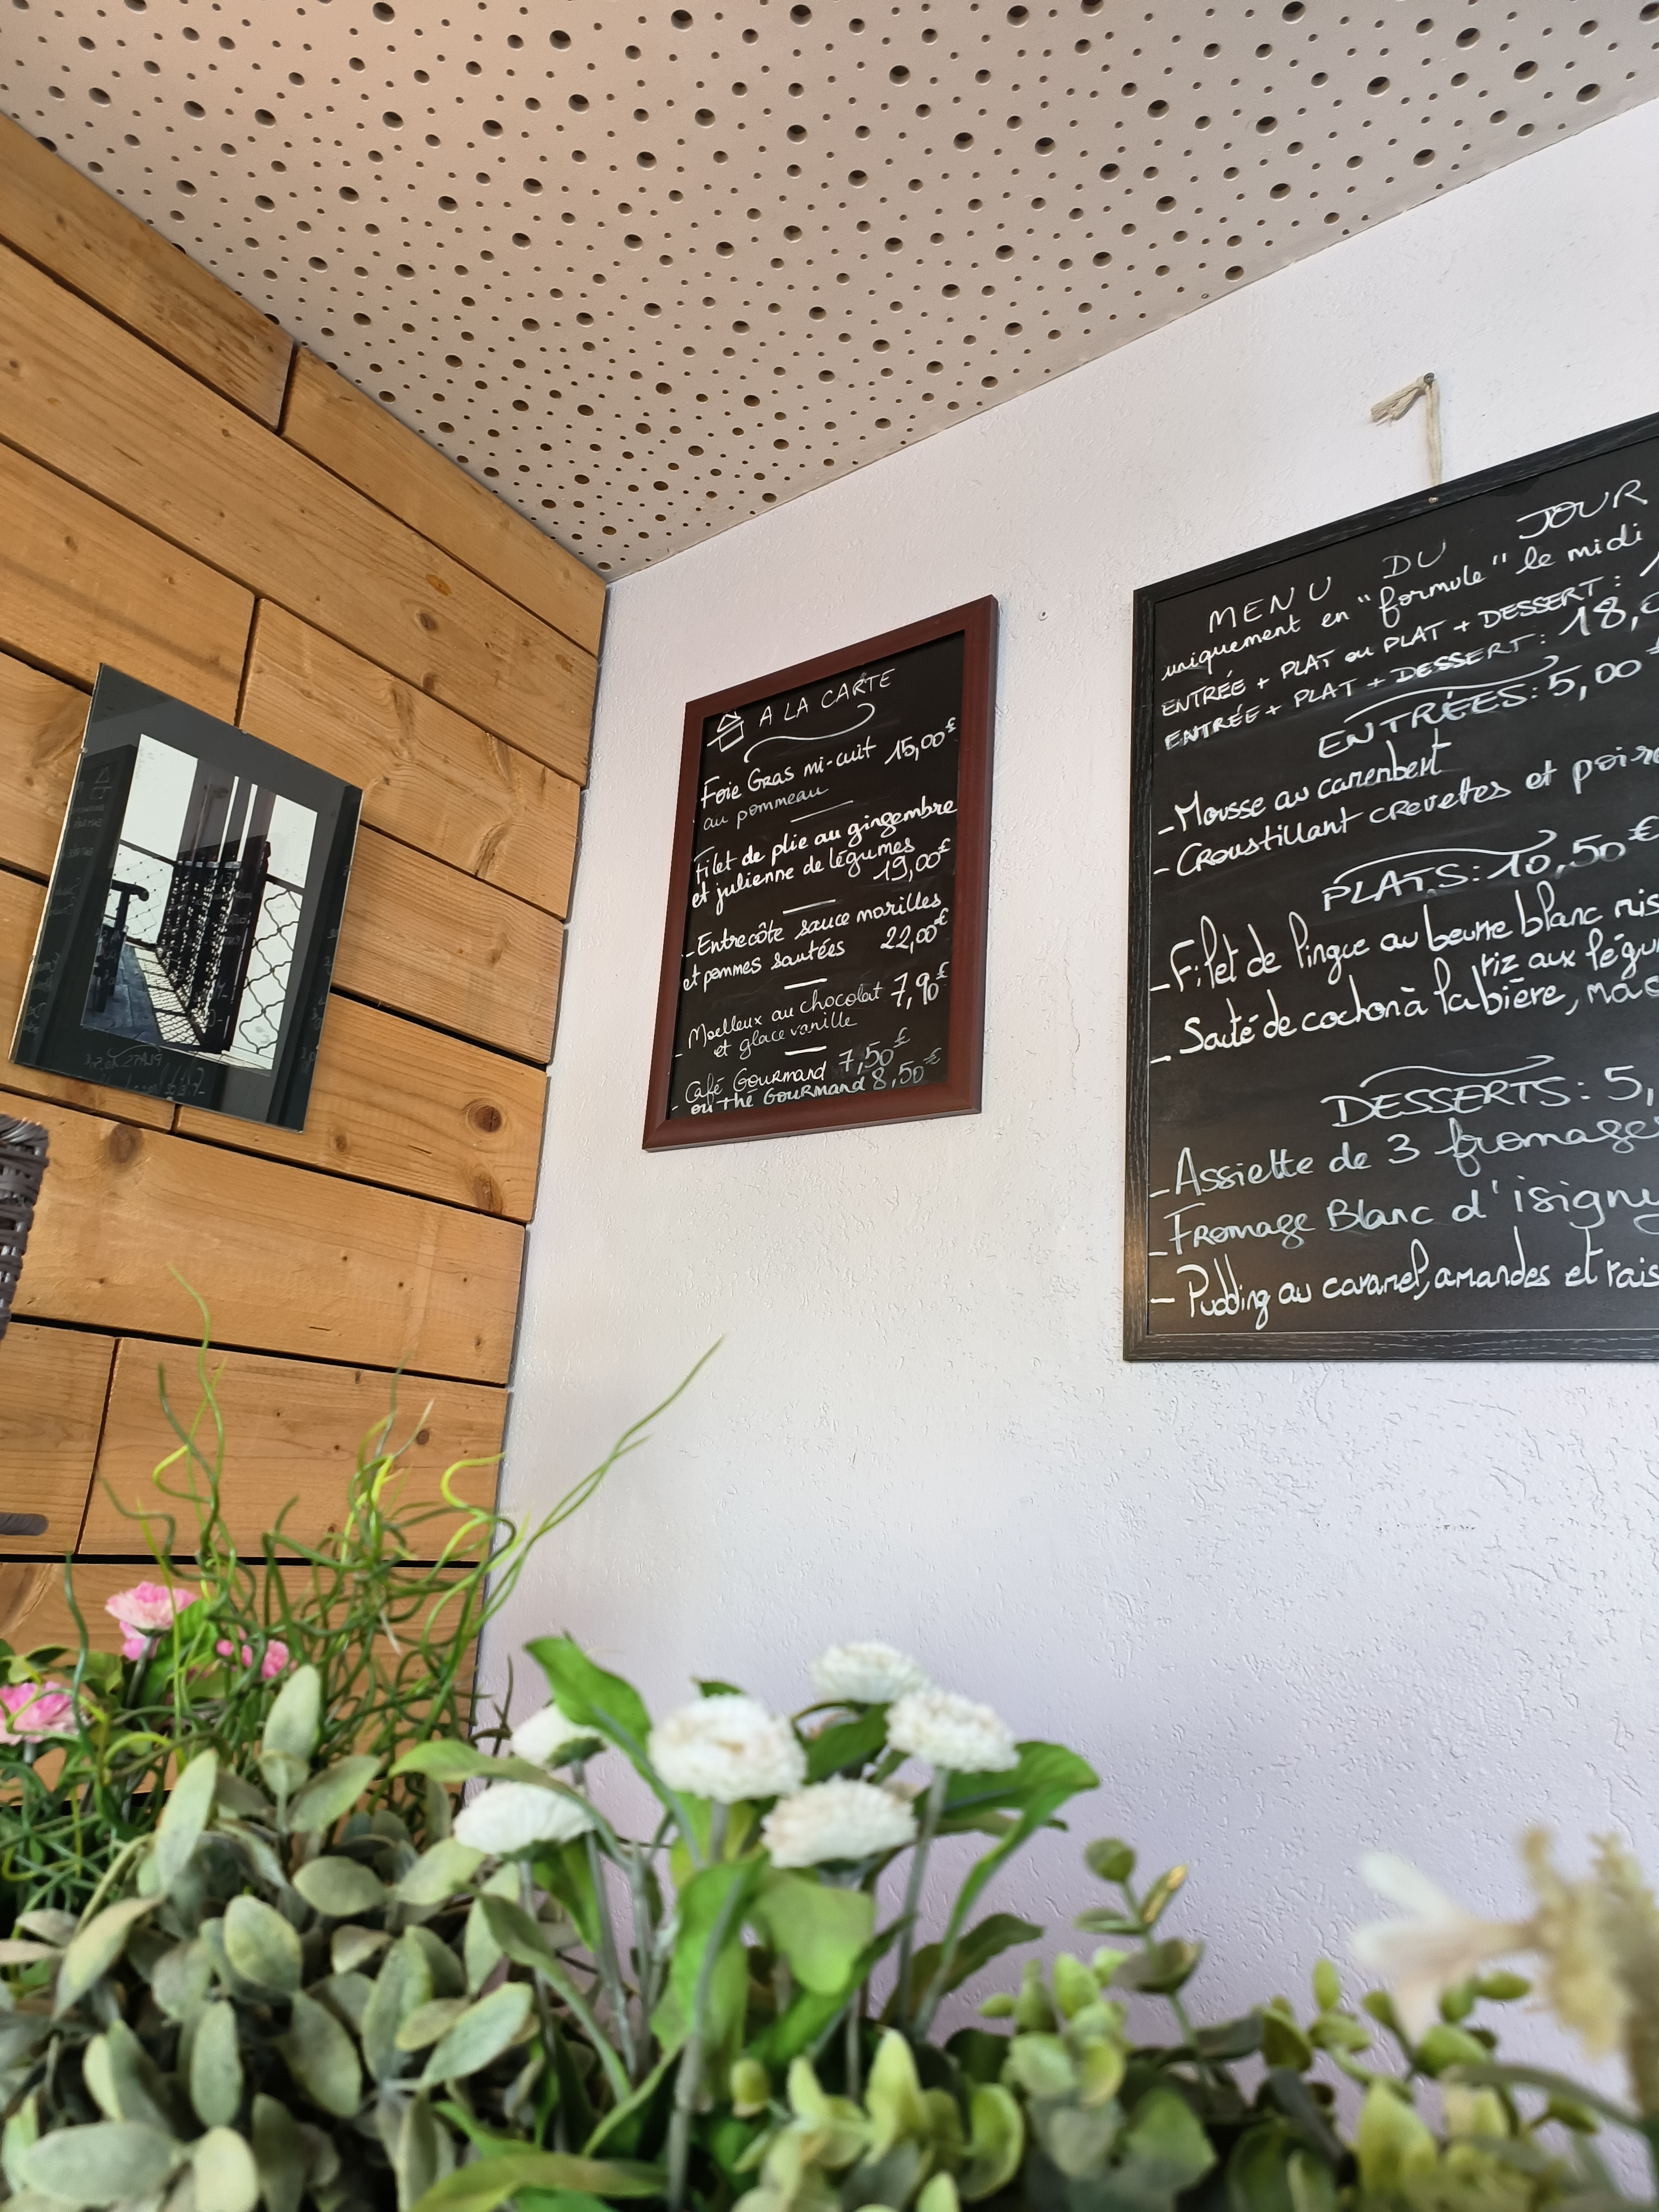 A LA CARTE
Foie Gras mi-cuit 15,00€
au pommeau
Filet de plie au gingembre
et julienne de légumes
19,00€
- Entrecôte sauce morilles
et pommes sautées 22,00€
- Moelleux au chocolat 7,90€
et glace vanille
- Café Gourmand 7,50€
ou thé Gourmand 8,50€
MENU DU JOUR
uniquement en "formule" le midi
ENTRÉE + PLAT ou PLAT + DESSERT :
ENTRÉE + PLAT + DESSERT : 18,
ENTRÉES : 5,00€
- Mousse au camenbert
- Croustillant crevettes et poire
PLATS : 10,50€
- Filet de lingue au beurre blanc
riz aux
- Sauté de cochon à la bière,
DESSERTS : 5,
- Assiette de 3 fromage
- Fromage Blanc d'isigny
- Pudding au caramel, amandes et